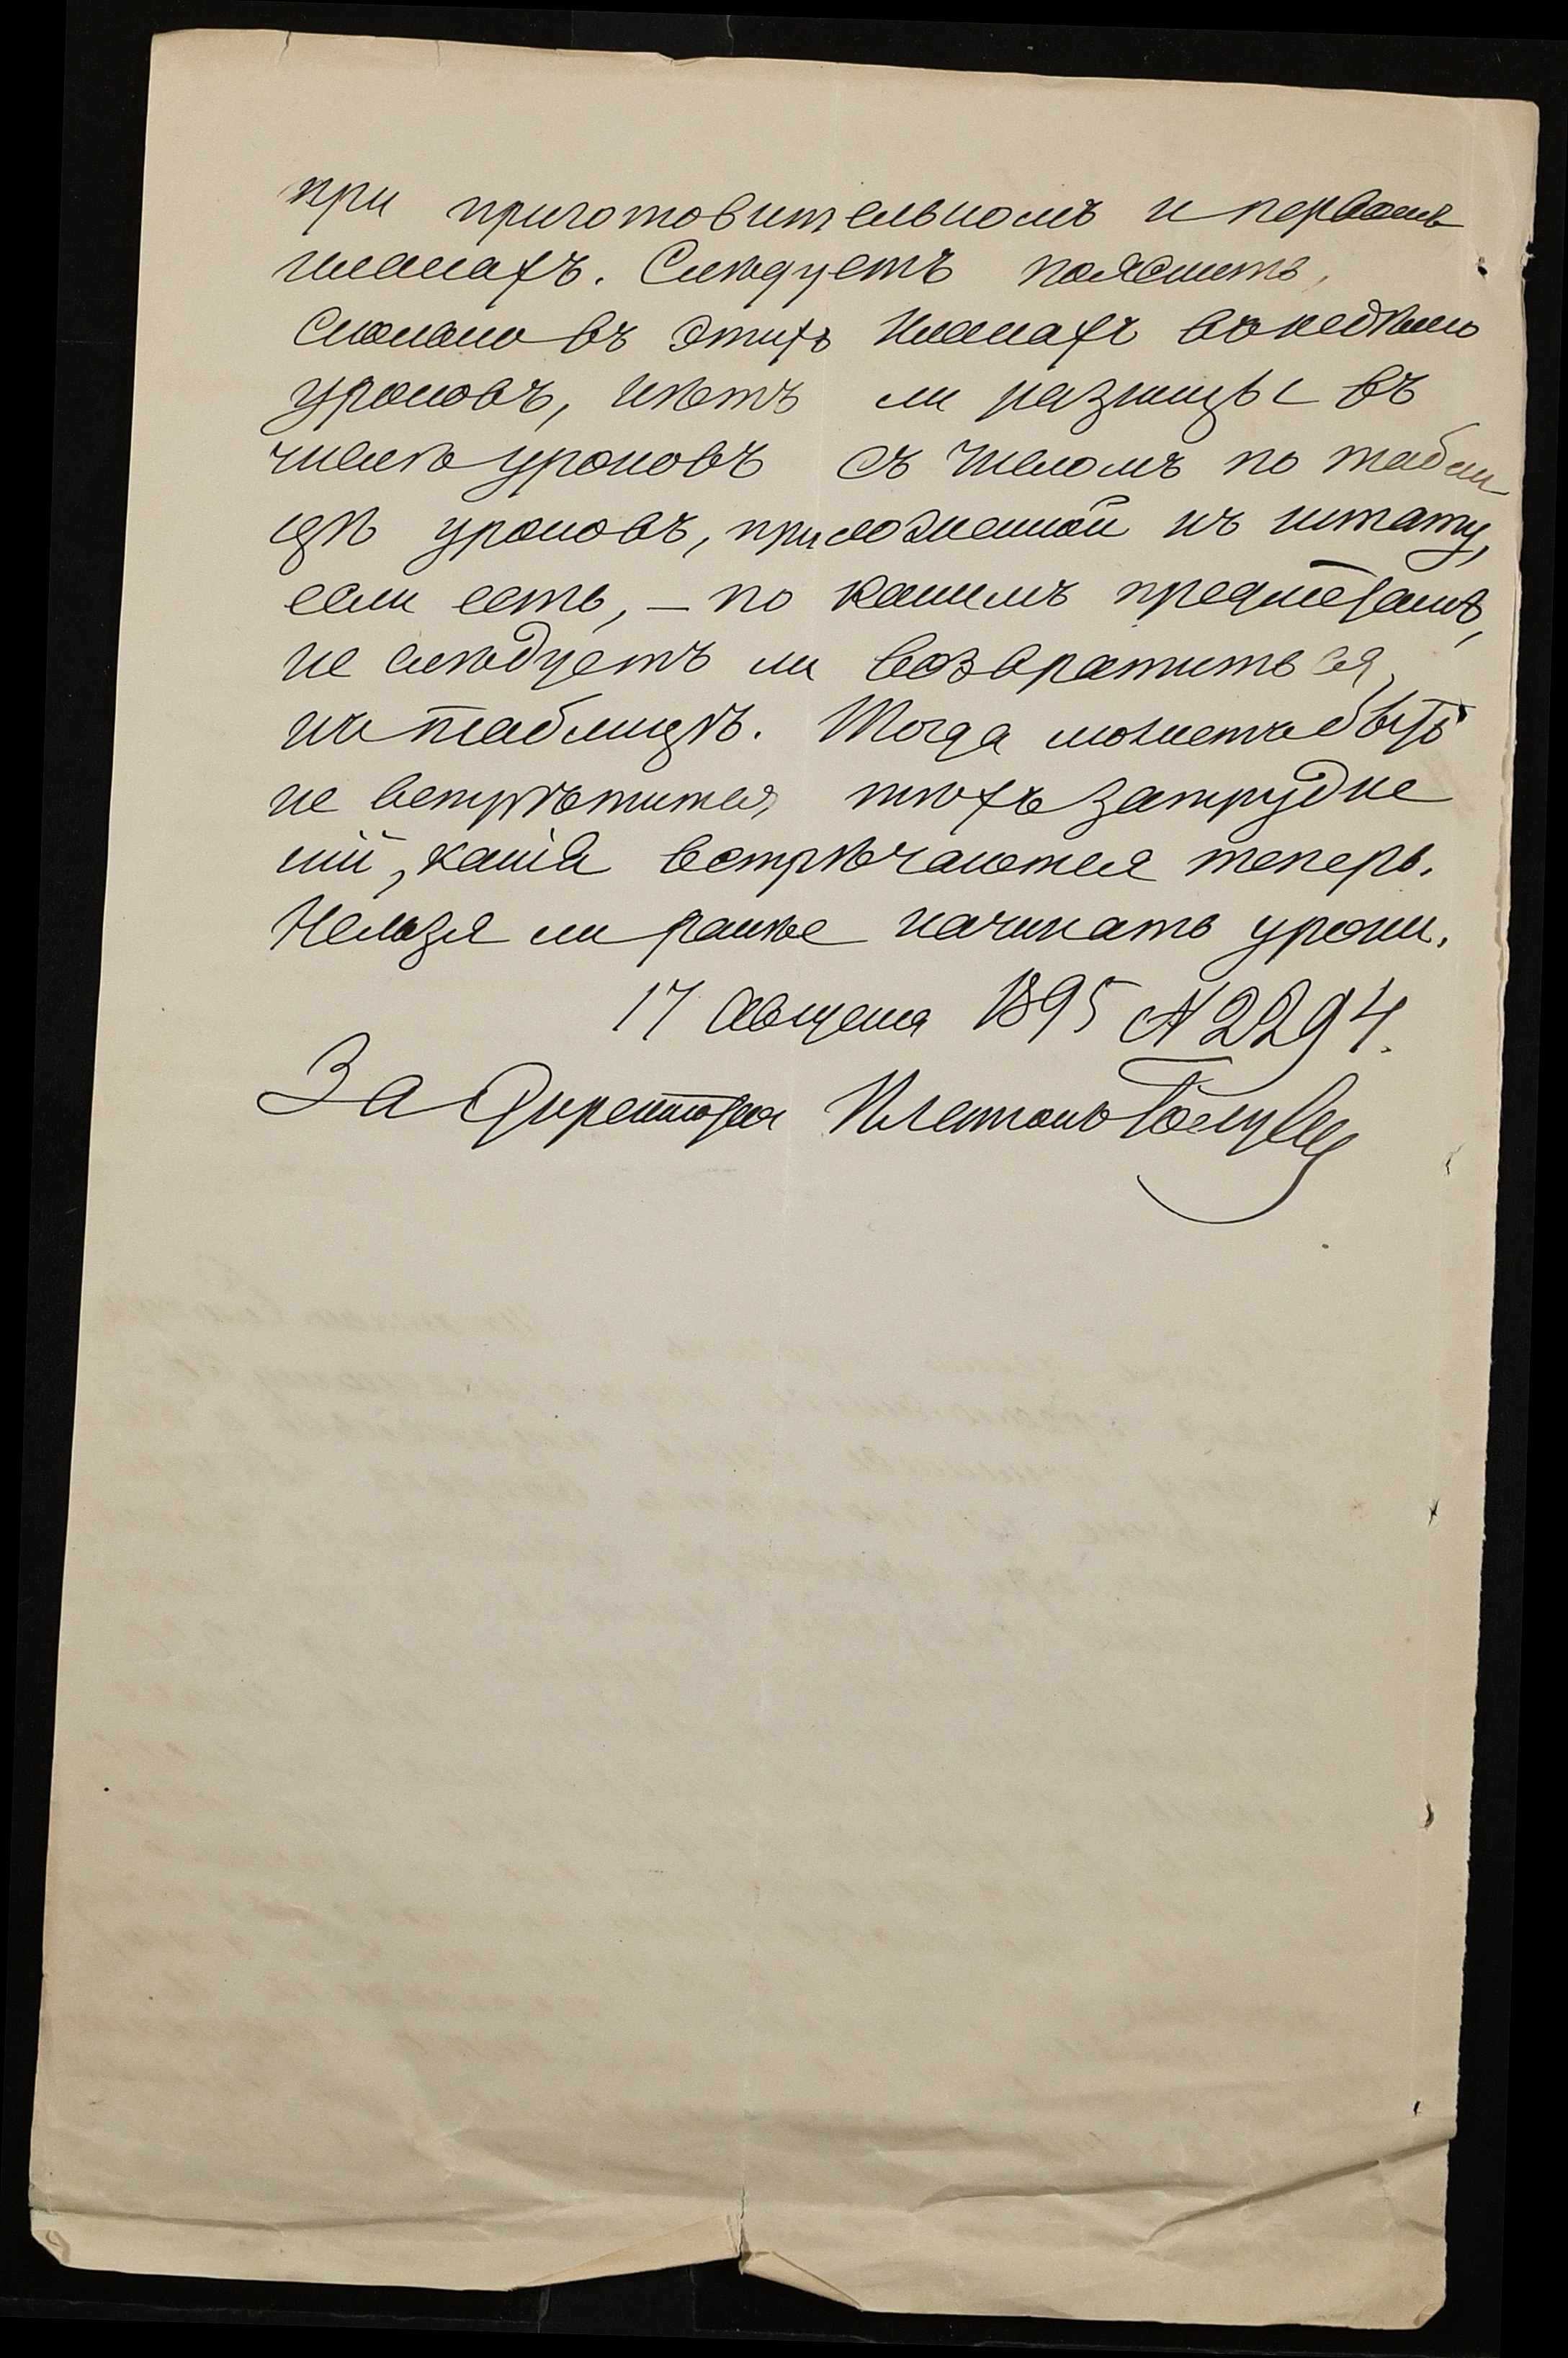 при приготовительномъ и первомъ
классахъ. Слѣдуетъ пояснить,
сколько въ этихъ классахъ въ недѣлю
уроковъ, нѣтъ ли разницы въ
числѣ уроковъ съ числомъ по табли
цѣ уроковъ, приложенной къ штату,
если есть, — по какимъ предметамъ,
не слѣдуетъ ли возвратиться
къ таблицѣ. Тогда можетъ быть
не встрѣтится тѣхъ затрудне
ній, какія встрѣчаются теперь.
Нельзя ли ранѣе начинать уроки.
17 Августа 1895 № 2294.
За Директора Платонъ